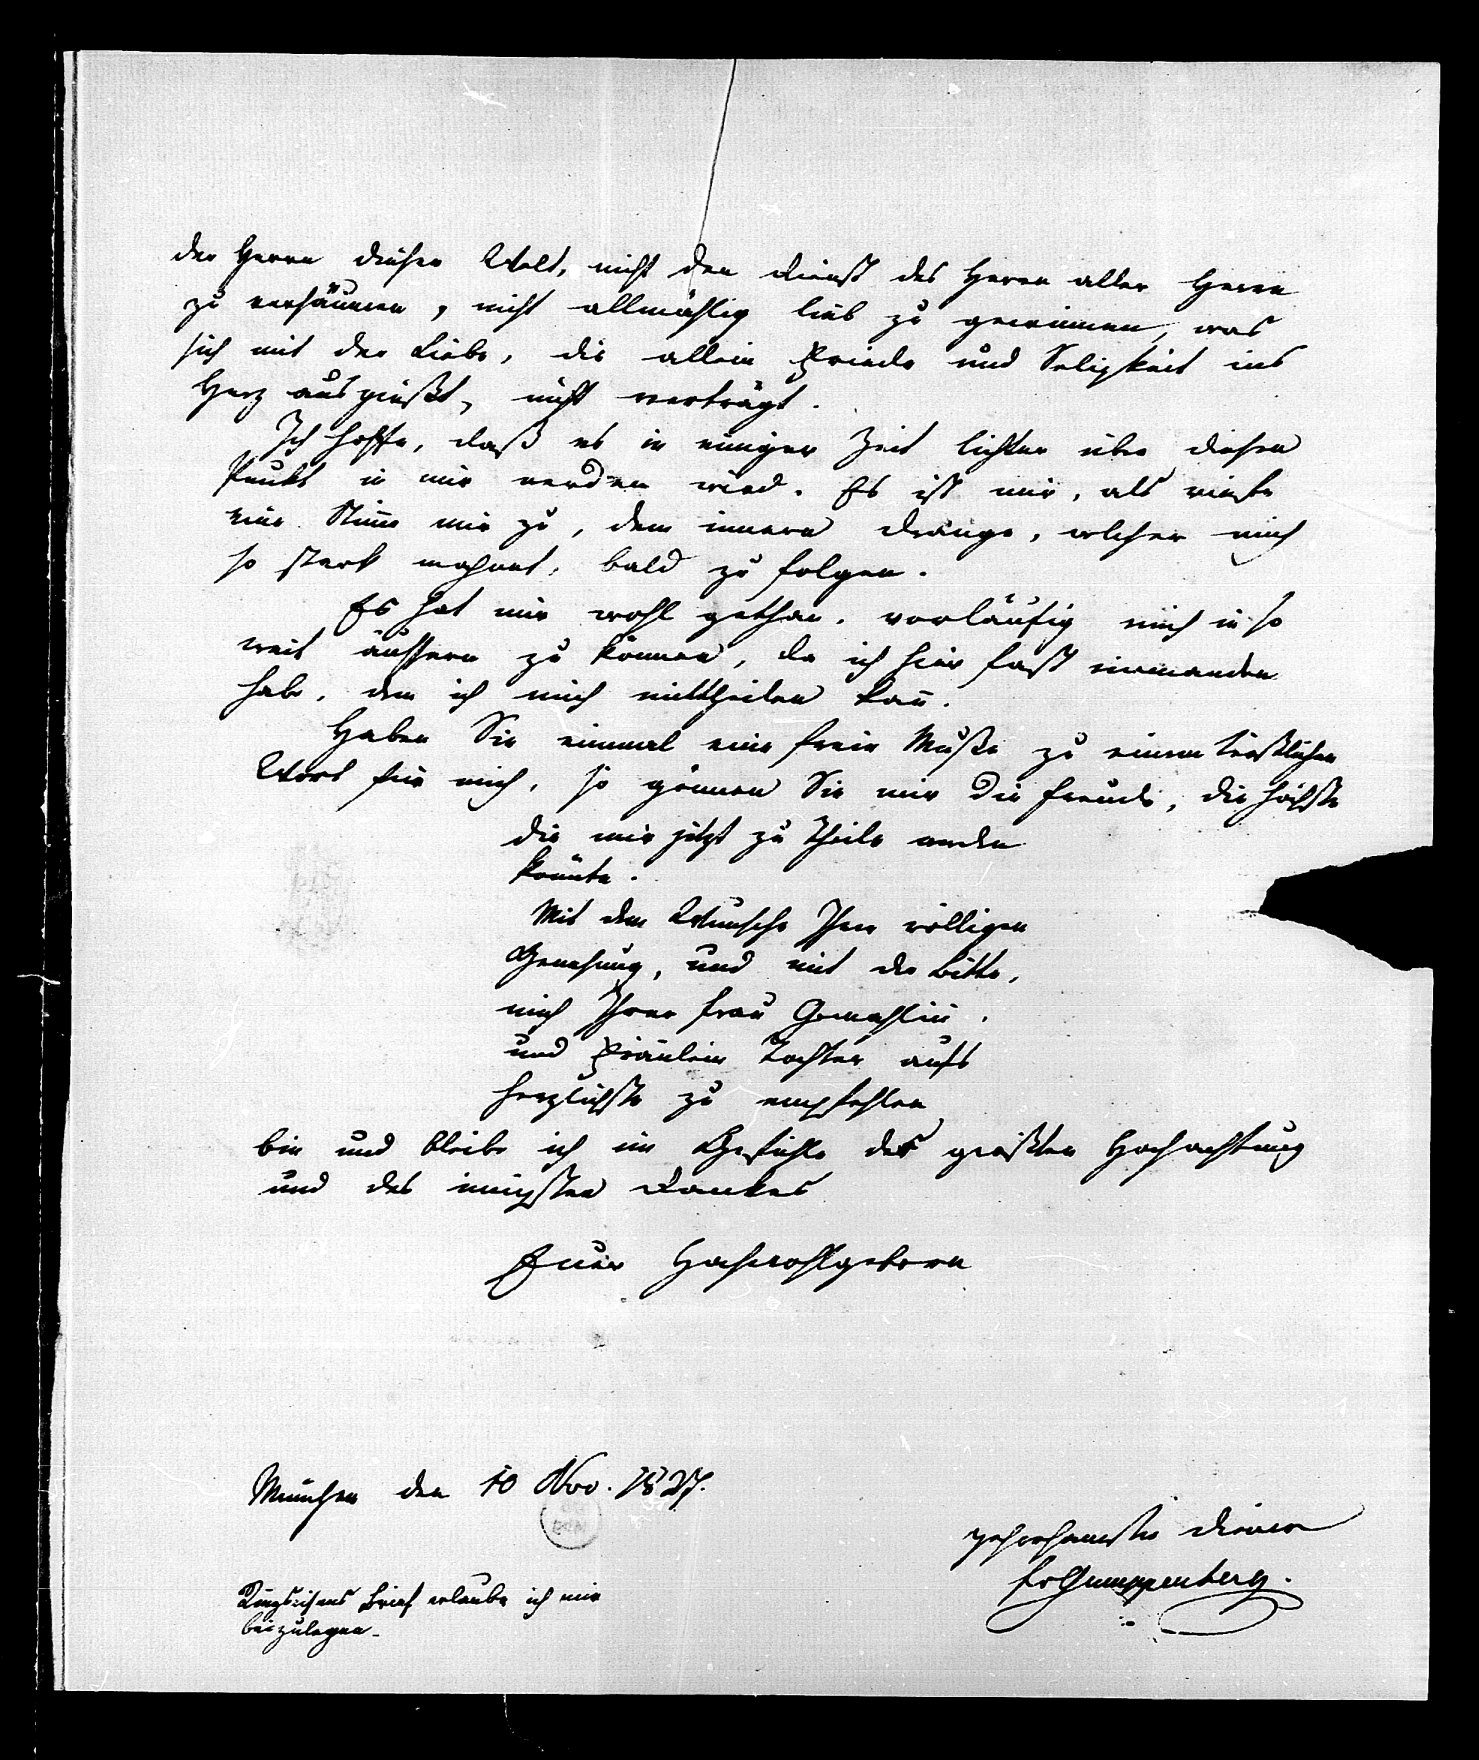 der Herrn dieser Welt, nicht den Dienst des Herrn aller Herrn
zu versäumen, nicht allmählig lieb zu gewinnen, was
sich mit der Liebe, die allein Friede und Seligkeit ins
Herz ausgießt, nicht verträgt.
Ich hoffe, daß es in einiger Zeit lichter über diesen
Punkt in mir werden wird. Es ist mir, als riefe
eine Stimme mir zu, dem innern Drange, welcher mich
so stark mahnet, bald zu folgen.
Es hat mir wohl gethan, vorläufig mich in so
weit äussern zu können, da ich hier fast niemanden
habe, dem ich mich mittheilen kañ.
Haben Sie einmal eine freie Muße zu einem tröstlichen
Wort für mich, so gönnen Sie mir die Freude, die höchste
die mir jetzt zu Theile werden
könnte.
Mit dem Wunsche Ihrer völligen
Genesung, und mit der Bitte,
mich Ihrer Frau Gemahlin
und Fräulein Tochter aufs
herzlichste zu empfehlen
bin und bleibe ich im Gefühle der größten Hochachtung
und des innigsten Dankes
Euer Hochwohlgeborn
München den 10 Nov. 1827.
gehorsamster Diener
Gumppenberg.
Ringseisens Brief erlaube ich mir
beizulegen.